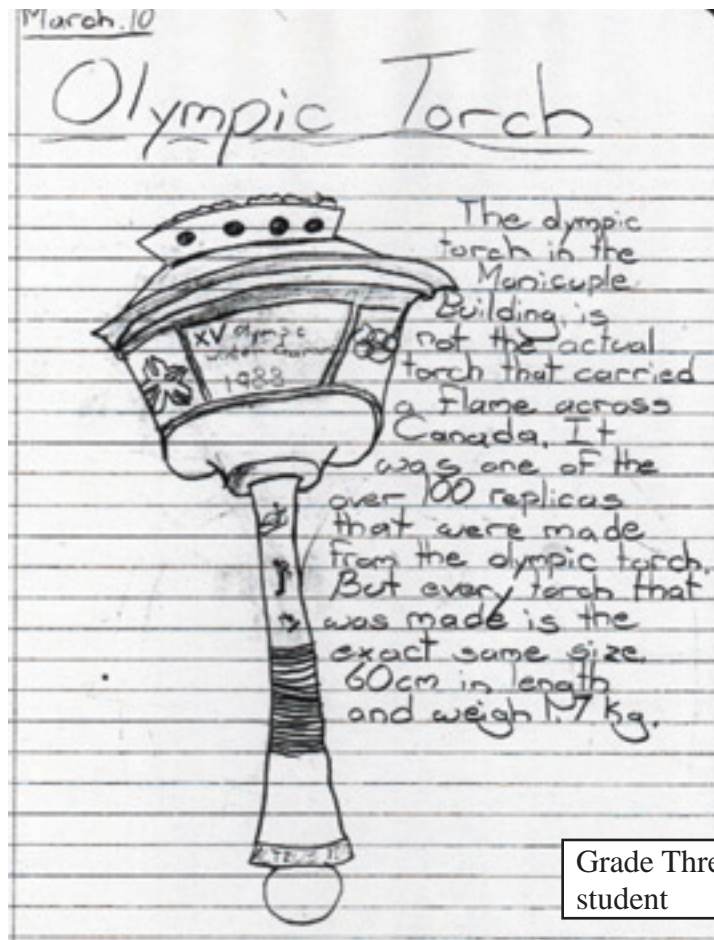 March.10
Olympic Torch
The olympic
torch in the
Manicuple
Building, is
not the actual
torch that carried
a flame across
Canada. It
was one of the
over 100 replicas
that were made
from the olympic torch.
But every torch that
was made is the
exact same size.
60cm in length
and weigh 1.7 kg.
XV Olympic
1988
Grade Thre
student